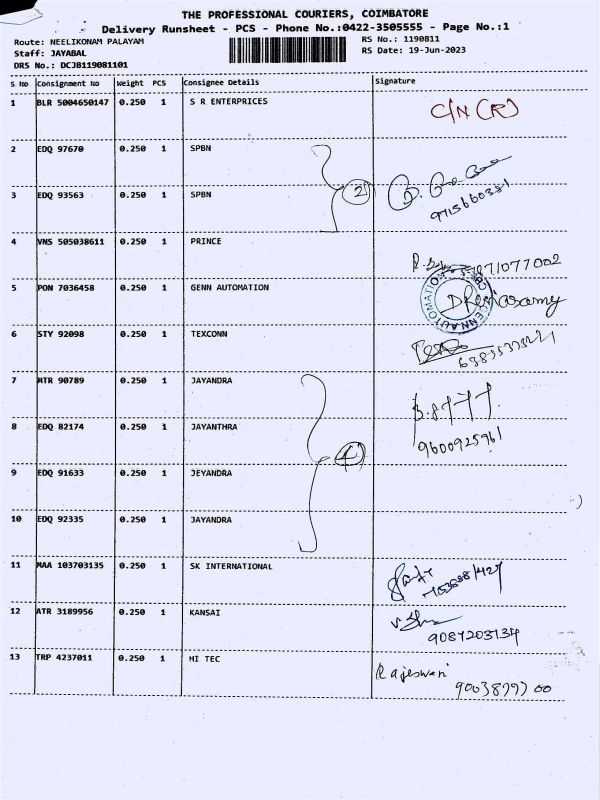 THE PROFESSIONAL COURIERS, COIMBATORE
Delivery Runsheet - PCS - Phone No.:0422-3505555 - Page No.:1
Route: NEELIKONAM PALAYAM RS No.: 1190811
Staff: JAYABAL RS Date: 19-Jun-2023
DRS No.: DCJB119081101
S No Consignment No Weight PCS Consignee Details Signature
1 BLR 5004650147 0.250 1 S R ENTERPRICES C/N (R)
2 EDQ 97670 0.250 1 SPBN
2
3 EDQ 93563 0.250 1 SPBN
4 VNS 505038611 0.250 1 PRINCE
5 PON 7036458 0.250 1 GENN AUTOMATION
GENN AUTOMATION CBE
6 STY 92098 0.250 1 TEXCONN
7 MTR 90789 0.250 1 JAYANDRA
8 EDQ 82174 0.250 1 JAYANTHRA
9600925961
4
9 EDQ 91633 0.250 1 JEYANDRA
10 EDQ 92335 0.250 1 JAYANDRA
11 MAA 103703135 0.250 1 SK INTERNATIONAL
12 ATR 3189956 0.250 1 KANSAI
9087203134
13 TRP 4237011 0.250 1 HI TEC
Rajeswari